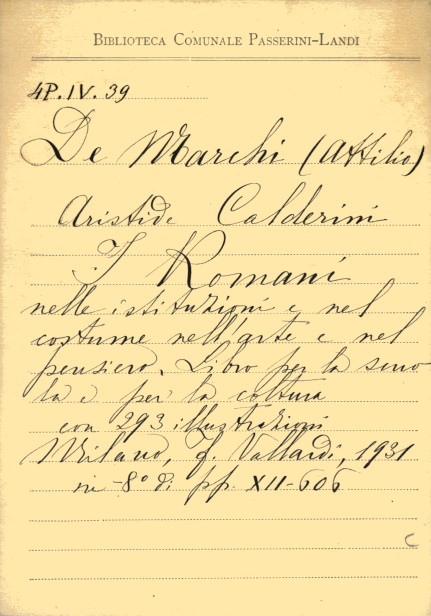 BIBLIOTECA COMUNALE PASSERINI-LANDI
4P.IV.39
De Marchi (Attilio)
Aristide Calderini
I Romani
nelle istituzioni e nel
costume nell'arte e nel
pensiero. Libro per la scuo
la e per la coltura
con 293 illustrazioni
Milano, F. Vallardi, 1931
in-8° di pp. XII-606
C